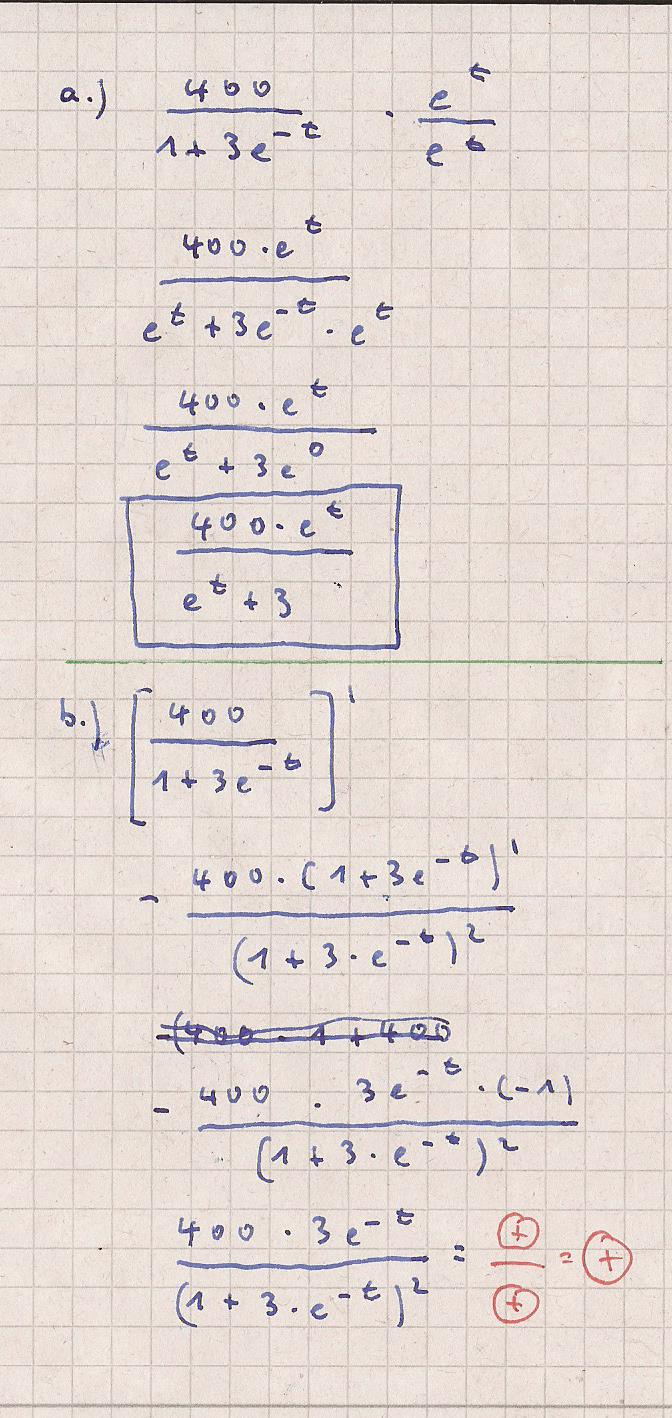 a.) 400 / (1 + 3e^-t) · e^t / e^t
400 · e^t / (e^t + 3e^-t · e^t)
400 · e^t / (e^t + 3e^0)
400 · e^t / (e^t + 3)
b.) [400 / (1 + 3e^-t)]'
- 400 · (1 + 3e^-t)' / (1 + 3 · e^-t)^2
-(400 · 1 + 400
- 400 · 3e^-t · (-1) / (1 + 3 · e^-t)^2
400 · 3e^-t / (1 + 3 · e^-t)^2 = + / + = +